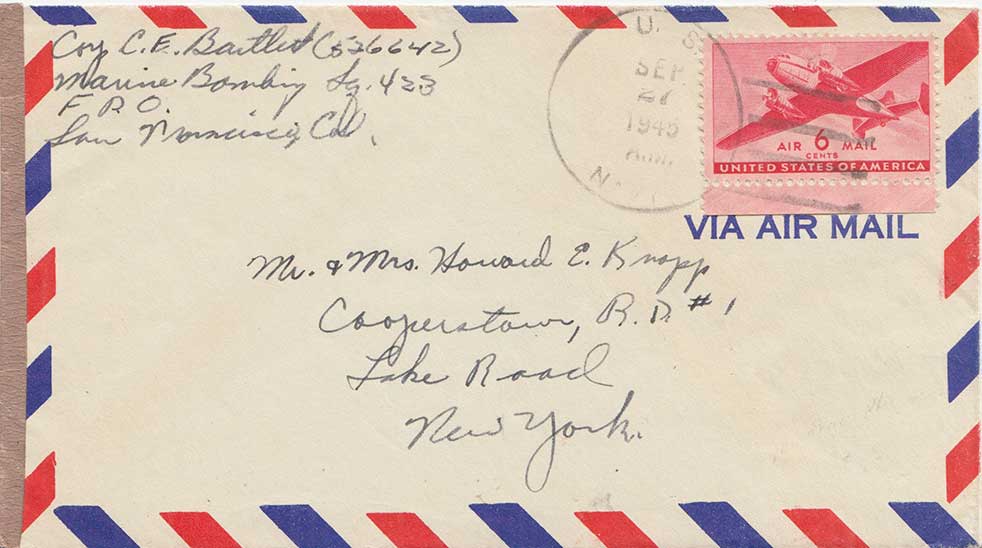 Coy C. E. Bartlett (526642)
Marine Bombing Sq. 423
F P.O.
San Francisco, Cal.
U. S.
SEP
27
1945
A.M.
AIR 6 MAIL
CENTS
UNITED STATES OF AMERICA
VIA AIR MAIL
Mr. & Mrs. Howard E. Knapp
Cooperstown, R.D. #1
Lake Road
New York.